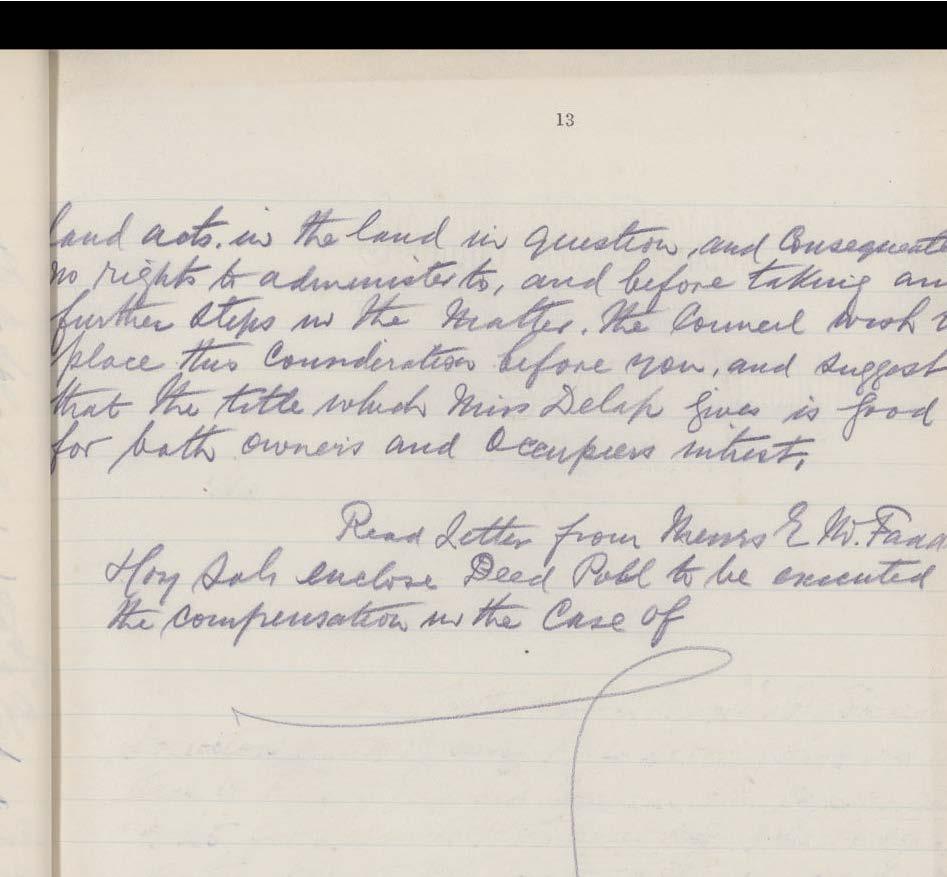 13
land acts. in the land in question, and Consequent
no rights to administer to, and before taking an
further steps in the Matter. The Council wish
place this Consideration before you, and suggest
that the title which Miss Delap gives is good
for both owners and Occupiers intrest.
Read letter from Messrs E Mc. Fadd
Hoy Sols enclose Deed Poll to be executed
the compensation in the Case of